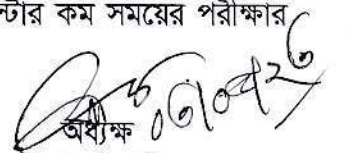 ন্টার কম সময়ের পরীক্ষার
অধ্যক্ষ